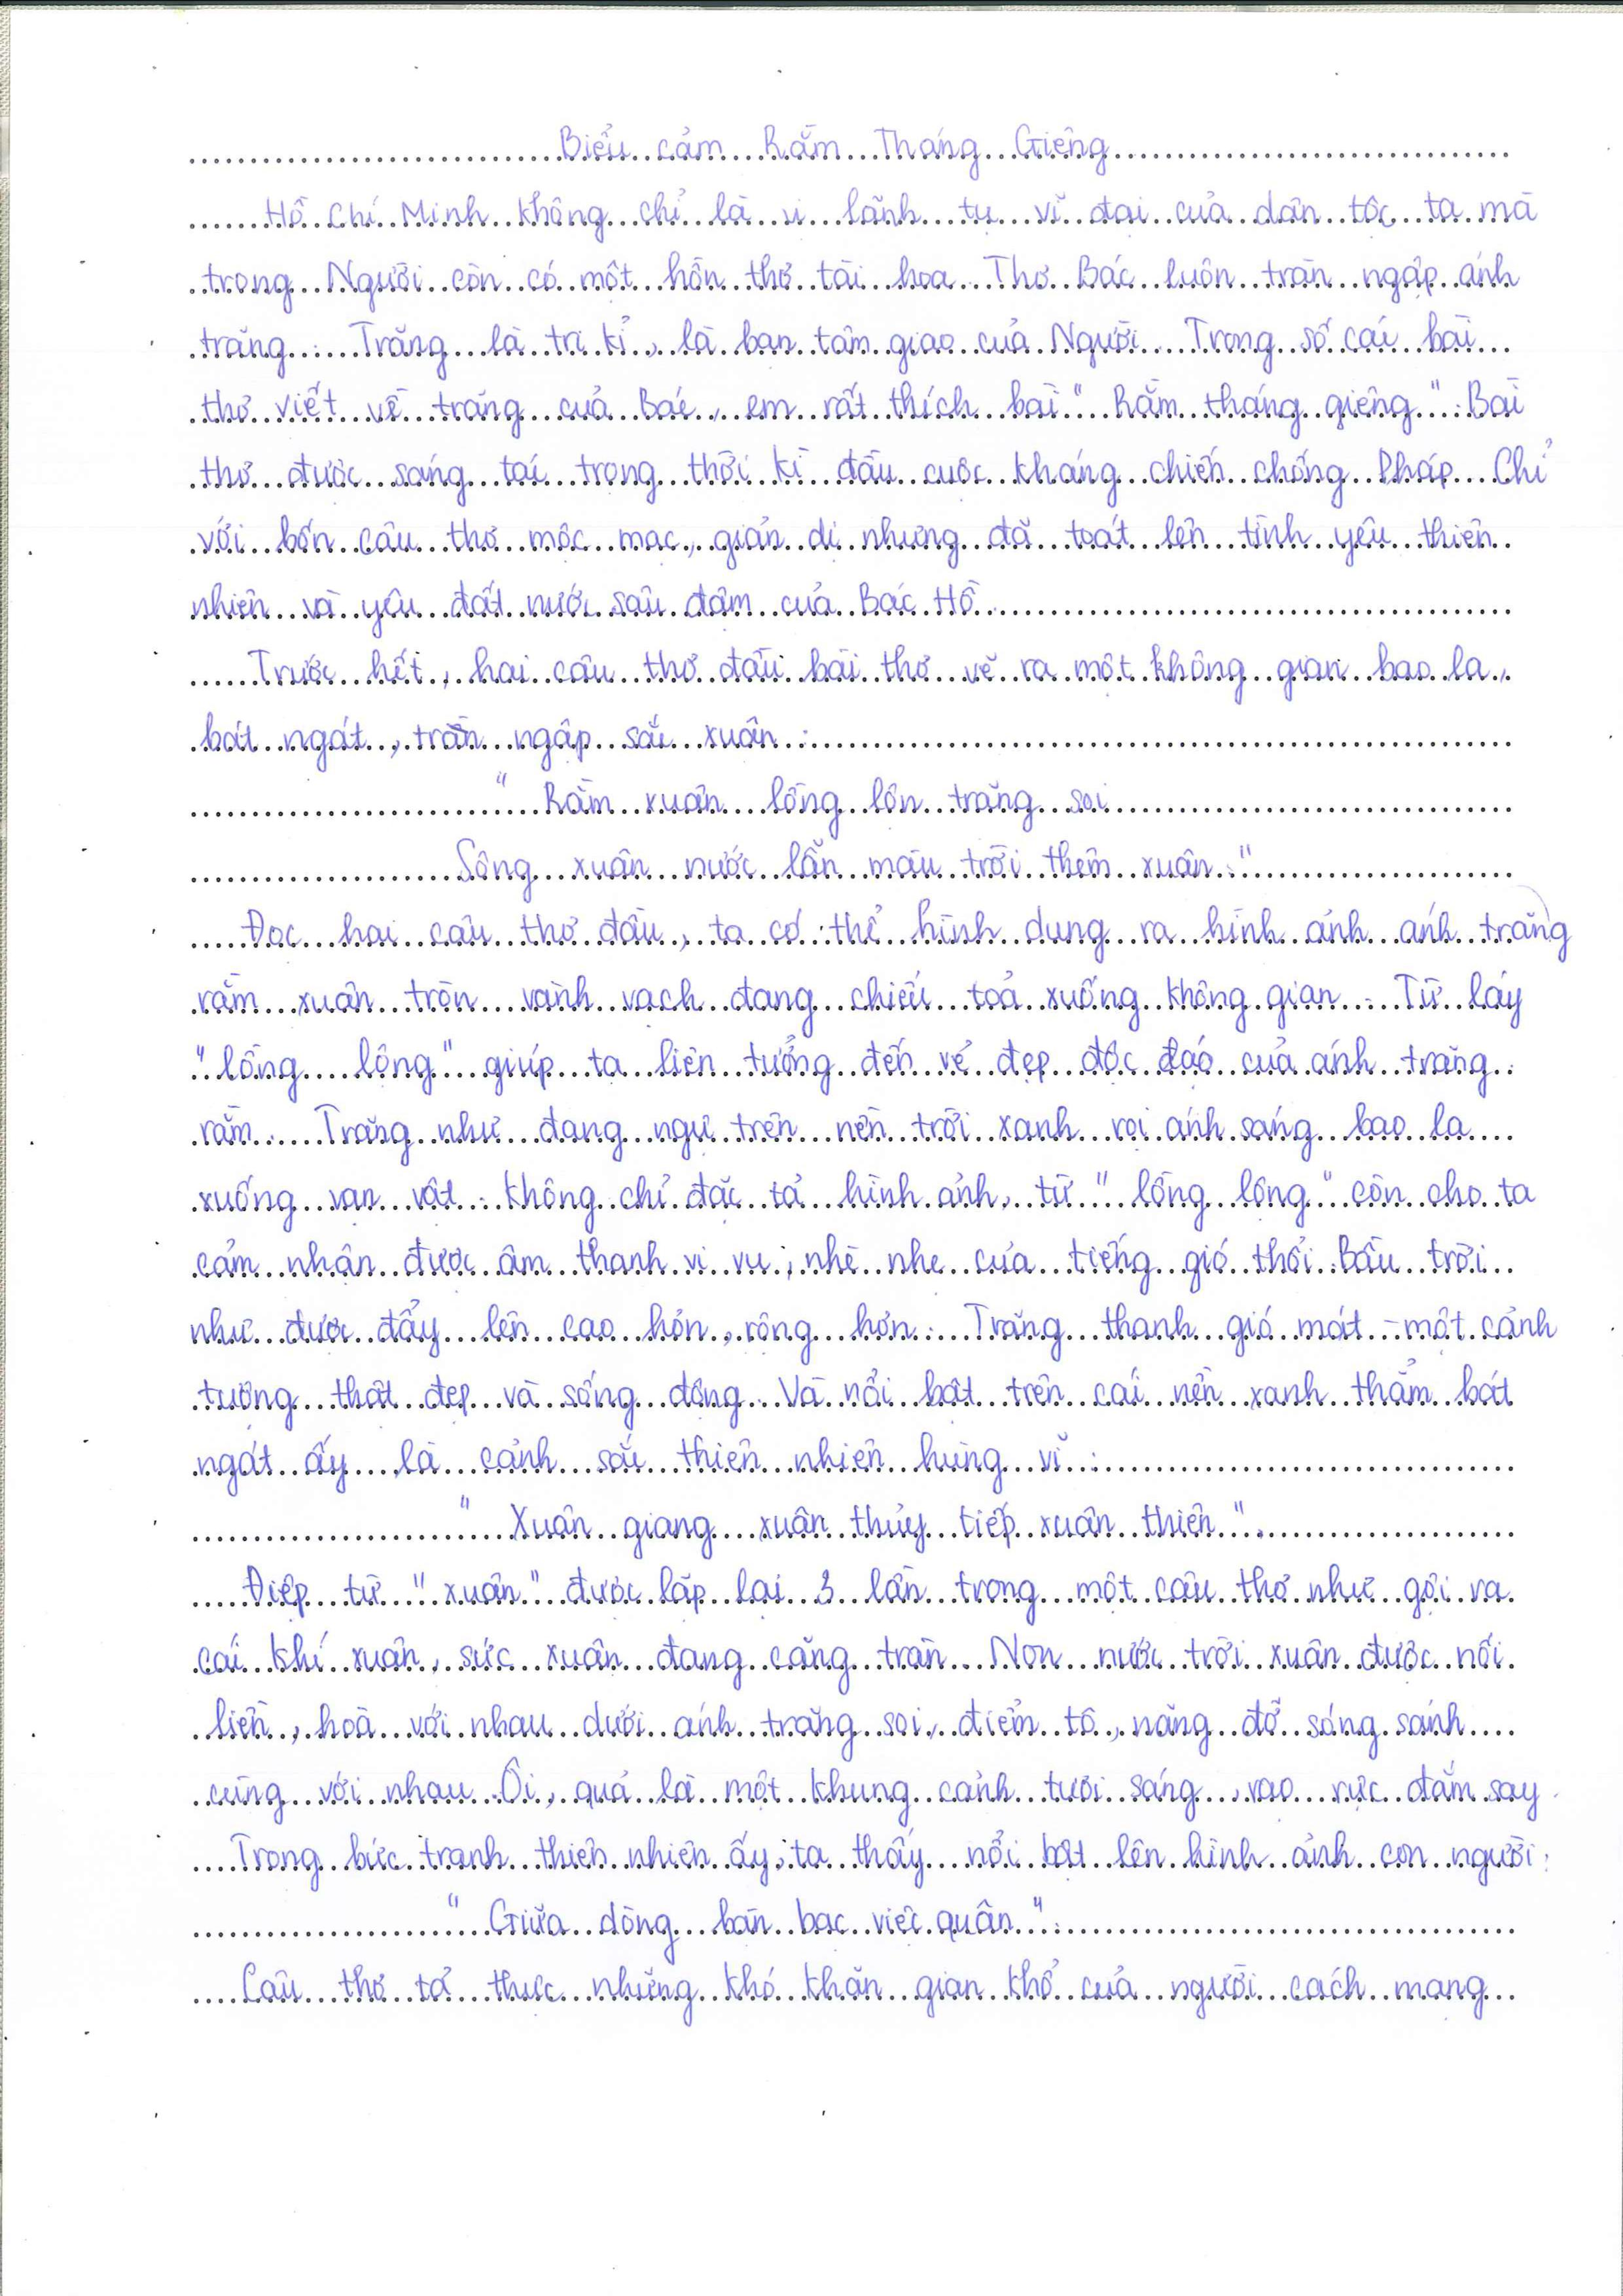 Biểu cảm Rằm Tháng Giêng
Hồ Chí Minh không chỉ là vị lãnh tụ vĩ đại của dân tộc ta mà
trong Người còn có một hồn thơ tài hoa. Thơ Bác luôn tràn ngập ánh
trăng. Trăng là tri kỉ, là bạn tâm giao của Người. Trong số các bài
thơ viết về trăng của Bác, em rất thích bài "Rằm tháng giêng". Bài
thơ được sáng tác trong thời kì đầu cuộc kháng chiến chống Pháp. Chỉ
với bốn câu thơ mộc mạc, giản dị nhưng đã toát lên tình yêu thiên
nhiên và yêu đất nước sâu đậm của Bác Hồ.
Trước hết, hai câu thơ đầu bài thơ vẽ ra một không gian bao la,
bát ngát, tràn ngập sắc xuân:
" Rằm xuân lồng lộn trăng soi
Sông xuân nước lẫn màu trời thêm xuân."
Đọc hai câu thơ đầu, ta có thể hình dung ra hình ảnh ánh trăng
rằm xuân tròn vành vạch đang chiếu toả xuống không gian. Từ láy
"lồng lộng" giúp ta liên tưởng đến vẻ đẹp độc đáo của ánh trăng
rằm. Trăng như đang ngự trên nền trời xanh rọi ánh sáng bao la
xuống vạn vật. Không chỉ đặc tả hình ảnh, từ "lồng lộng" còn cho ta
cảm nhận được âm thanh vi vu, nhè nhẹ của tiếng gió thổi. Bầu trời
như được đẩy lên cao hơn, rộng hơn. Trăng thanh gió mát - một cảnh
tượng thật đẹp và sống động. Và nổi bật trên cái nền xanh thẳm bát
ngát ấy, là cảnh sắc thiên nhiên hùng vĩ:
" Xuân giang xuân thủy tiếp xuân thiên".
Điệp từ "xuân" được lặp lại 3 lần trong một câu thơ như gợi ra
cái khí xuân, sức xuân đang căng tràn. Non nước trời xuân được nối
liền, hoà với nhau dưới ánh trăng soi, điểm tô, nâng đỡ sóng sánh
cùng với nhau. Ôi, quả là một khung cảnh tươi sáng, rạo rực đắm say.
Trong bức tranh thiên nhiên ấy, ta thấy nổi bật lên hình ảnh con người:
" Giữa dòng bàn bạc việc quân".
Câu thơ tả thực những khó khăn gian khổ của người cách mạng